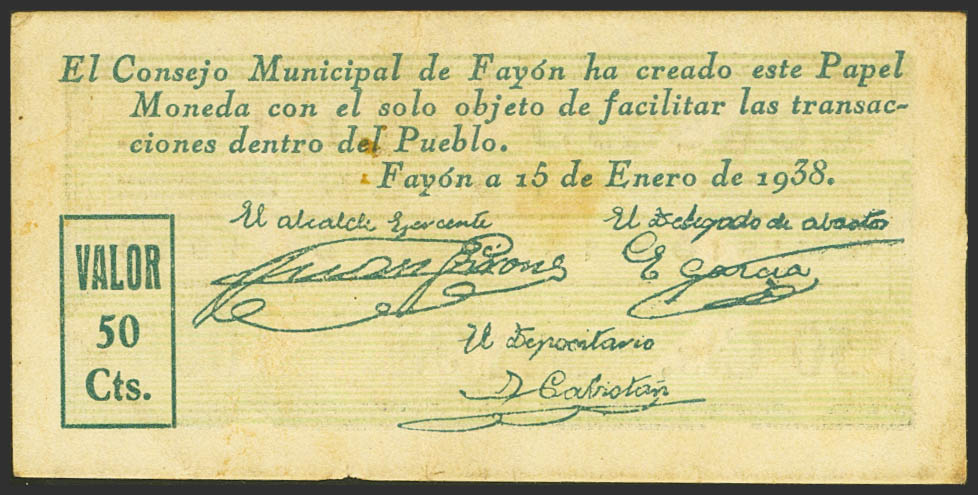 El Consejo Municipal de Fayón ha creado este Papel
Moneda con el solo objeto de facilitar las transac-
ciones dentro del Pueblo.
Fayón a 15 de Enero de 1938.
El alcalde Ejercente
El Delegado de abastos
Juan
E García
VALOR
50
Cts.
El Depocitario